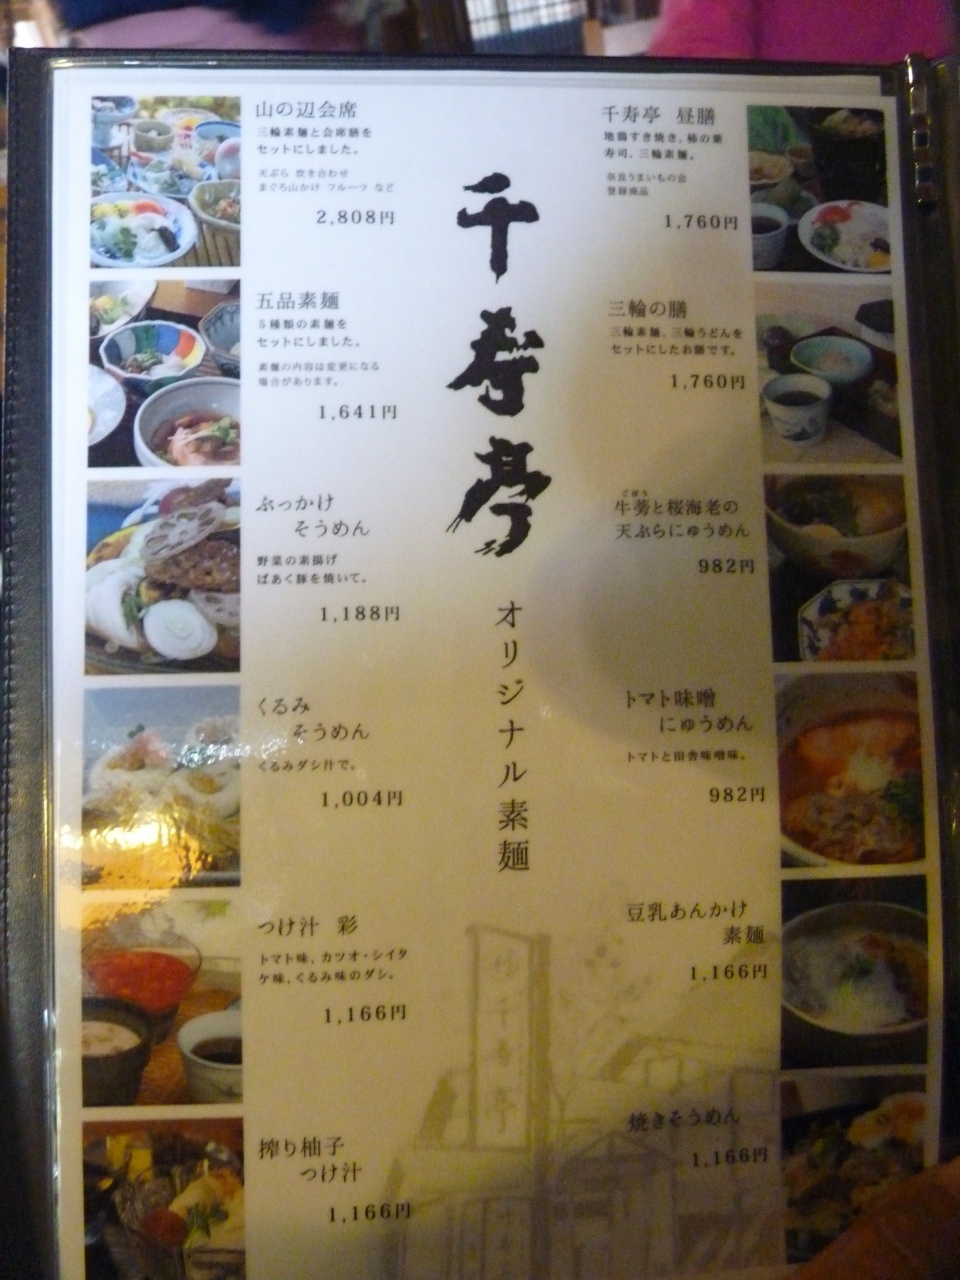 山の辺会席
三輪素麺と会席膳を
セットにしました。
天ぷら 炊き合わせ
まぐろ山かけ フルーツ など
2,808円
五品素麺
5種類の素麺を
セットにしました。
素麺の内容は変更になる
場合があります。
1,641円
ぶっかけ
そうめん
野菜の素揚げ
ばあく豚を焼いて。
1,188円
くるみ
そうめん
くるみダシ汁で。
1,004円
つけ汁 彩
トマト味、カツオ・シイタ
ケ味、くるみ味のダシ。
1,166円
搾り柚子
つけ汁
1,166円
千寿亭
オリジナル素麺
千寿亭 昼膳
地鶏すき焼き、柿の葉
寿司、三輪素麺。
奈良うまいもの会
登録商品
1,760円
三輪の膳
三輪素麺、三輪うどんを
セットにしたお膳です。
1,760円
ごぼう
牛蒡と桜海老の
天ぷらにゅうめん
982円
トマト味噌
にゅうめん
トマトと田舎味噌味。
982円
豆乳あんかけ
素麺
1,166円
焼きそうめん
1,166円
千寿亭